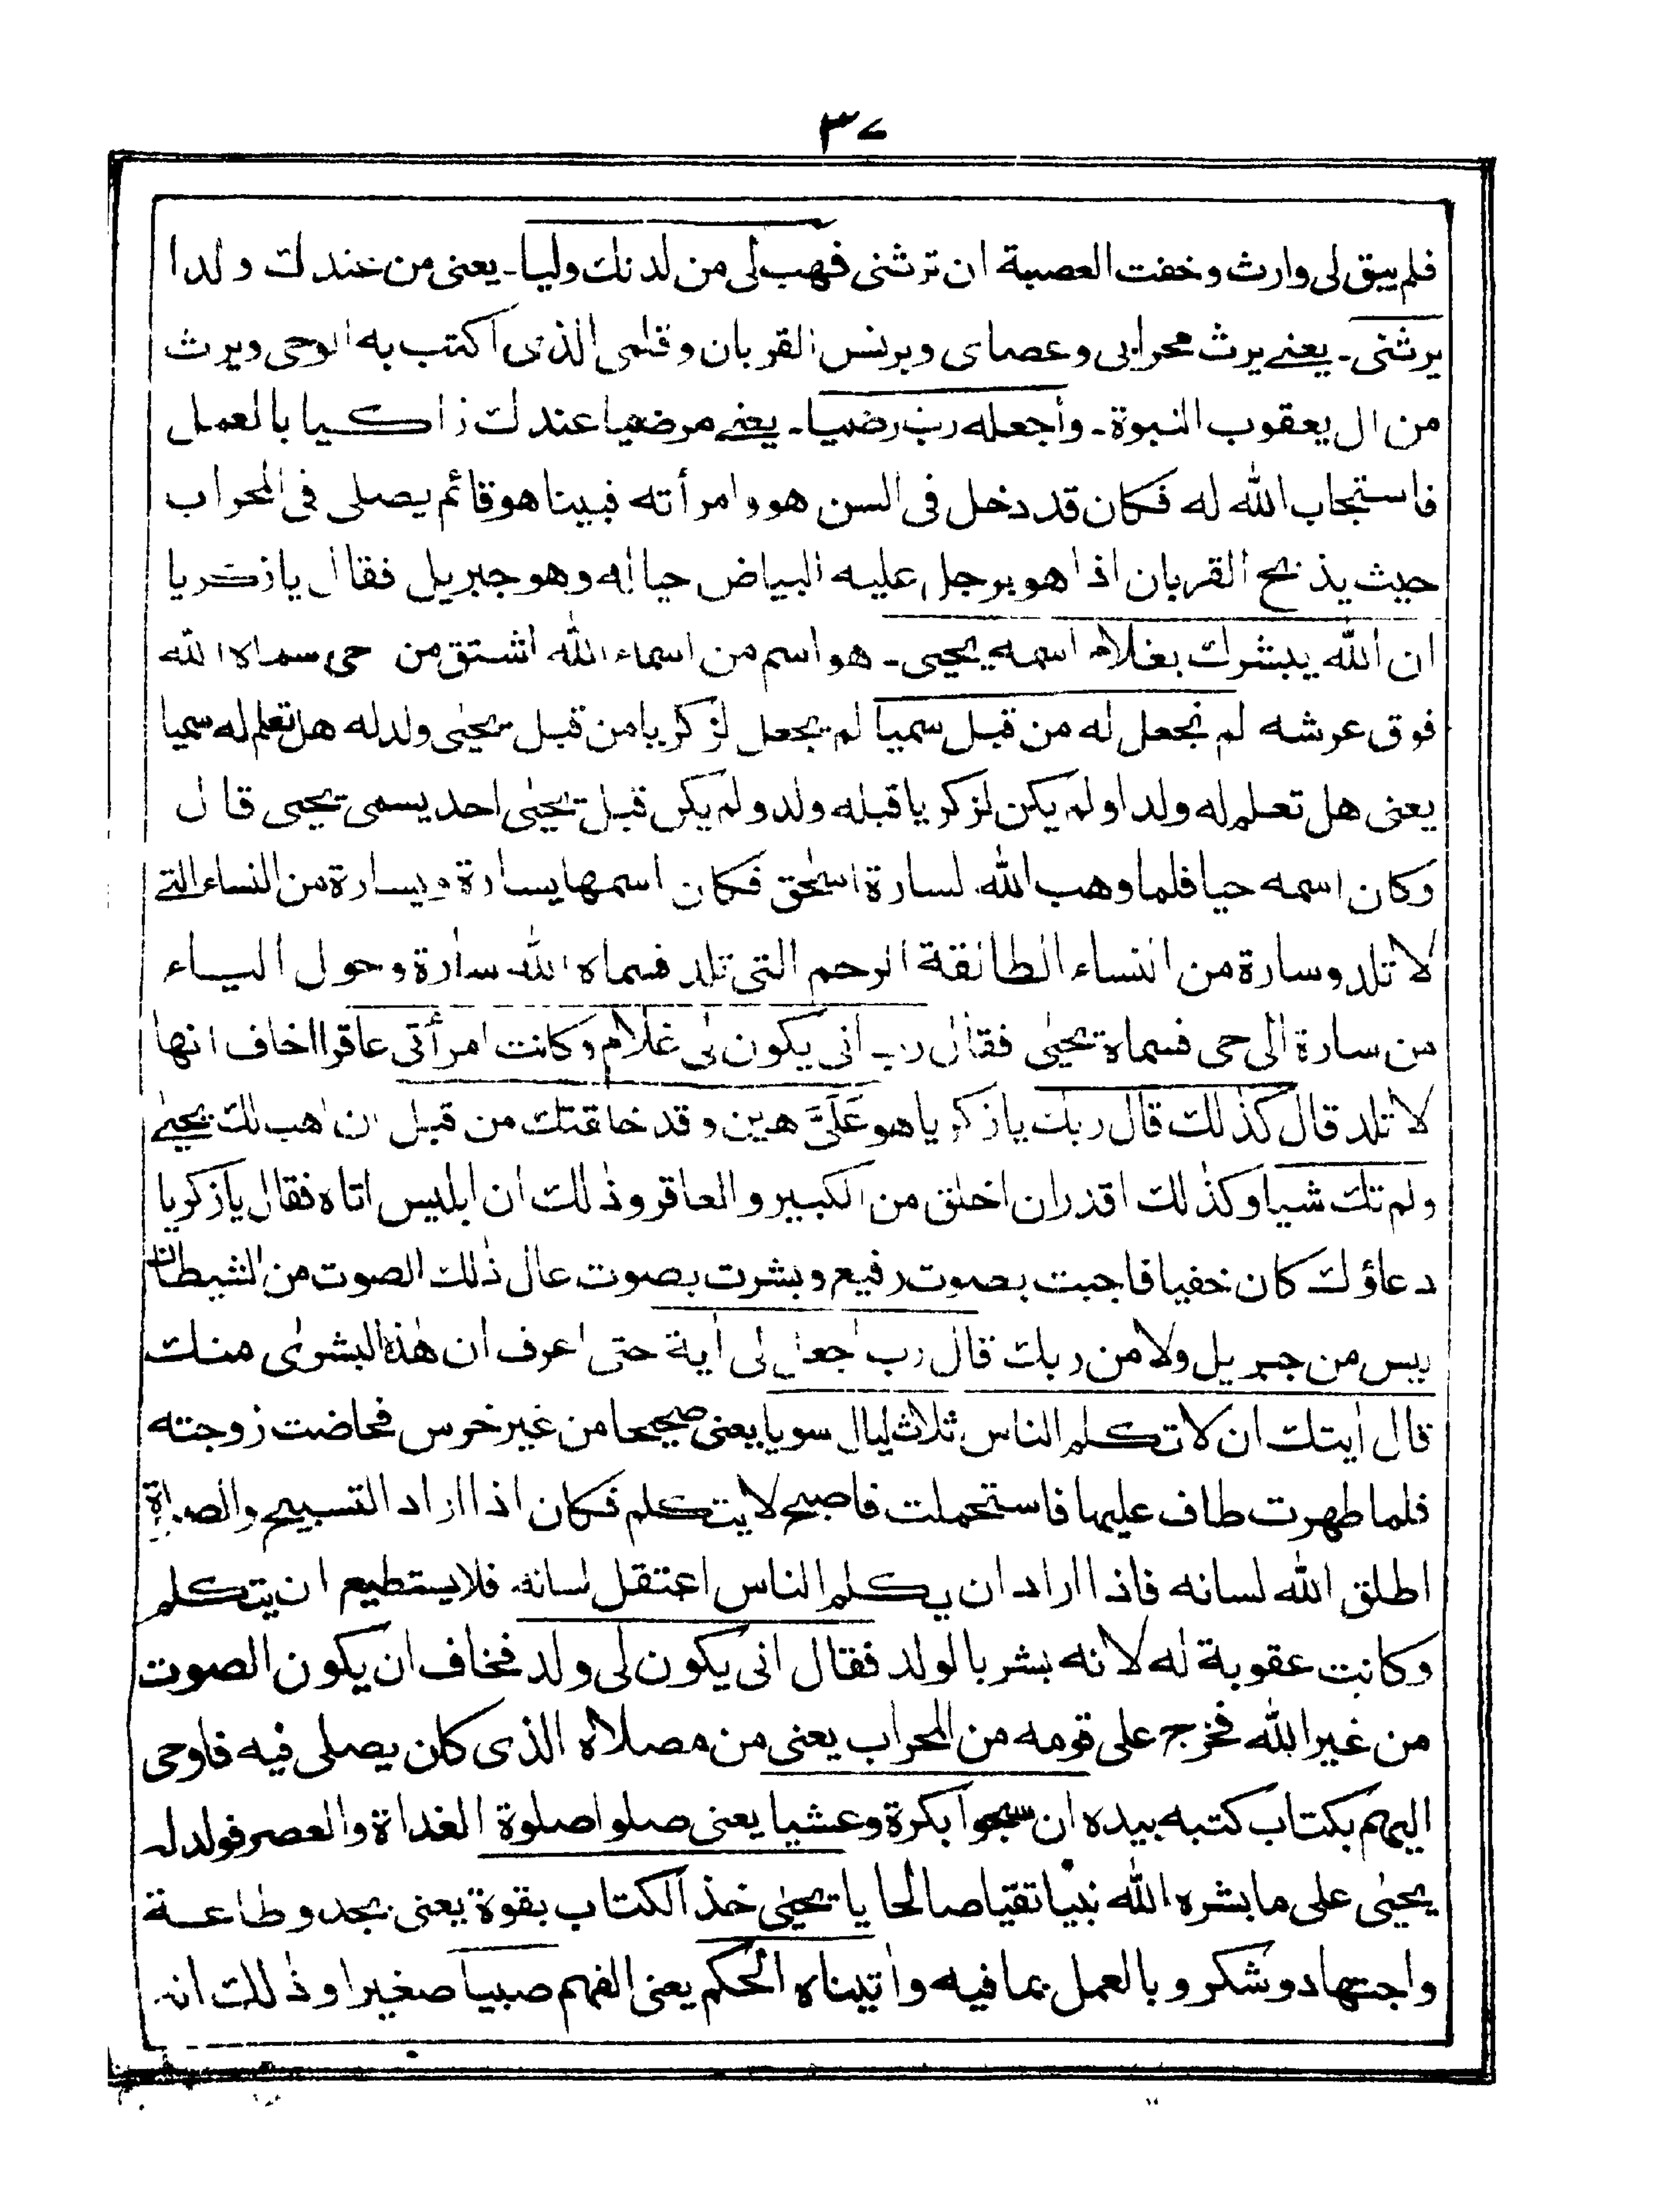 ٣٧
فلم يبق لى وارث وخفت العصبة ان ترثنى فهب لى من لدنك وليا۔ يعنى من عندك ولدا
يرثنى۔ يعنے يرث محرابى وعصاى وبرنس القربان وقلمى الذى اكتب به الوحى ويرث
من ال يعقوب النبوة۔ واجعله رب رضيا۔ يعنے مرضيا عندك زاكيا بالعمل
فاستجاب الله له فكان قد دخل فى السن هو وامرأته فبينا هو قائم يصلى فى المحراب
حيث يذبح القربان اذا هو برجل عليه البياض حياله وهو جبريل فقال يا زكريا
ان الله يبشرك بغلام اسمه يحيى۔ هو اسم من اسماء الله اشتق من حى سماه الله
فوق عرشه لم نجعل له من قبل سميا لم يجعل لزكريا من قبل يحيٰى ولد له هل تعلم له سميا
يعنى هل تعلم له ولدا ولم يكن لزكريا قبله ولد ولم يكن قبل يحيٰى احد يسمى يحيى قال
وكان اسمه حيا فلما وهب الله لسارة اسحٰق فكان اسمها يسارة ويسارة من النساء التے
لا تلد وسارة من النساء الطالقة الرحم التى تلد فسماه الله سارة وحول الياء
من سارة الى حى فسماه يحيٰى فقال رب انى يكون لى غلام وكانت امرأتى عاقرا اخاف انها
لا تلد قال كذٰلك قال ربك يا زكريا هو عَلَىَّ هين وقد خلقتك من قبل ان اهب لك يحيٰے
ولم تك شيا وكذٰلك اقدر ان اخلق من الكبير والعاقر وذٰلك ان ابليس اتاه فقال يا زكريا
دعاؤك كان خفيا فاجبت بصوت رفيع وبشرت بصوت عال ذٰلك الصوت من الشيطان
ليس من جبريل ولا من ربك قال رب اجعل لى اٰية حتى اعرف ان هٰذه البشرٰى منك
قال اٰيتك ان لا تكلم الناس ثلاث ليال سويا يعنى صحيحا من غير خرس فحاضت زوجته
فلما طهرت طاف عليها فاستحملت فاصبح لا يتكلم فكان اذا اراد التسبيح والصلٰوة
اطلق الله لسانه فاذا اراد ان يكلم الناس اعتقل لسانه فلا يستطيع ان يتكلم
وكانت عقوبة له لانه بشر بالولد فقال انى يكون لى ولد فخاف ان يكون الصوت
من غير الله فخرج على قومه من المحراب يعنى من مصلاه الذى كان يصلى فيه فاوحى
اليهم بكتاب كتبه بيده ان سبحوا بكرة وعشيا يعنى صلوا صلوة الغداة والعصر فولد له
يحيٰى على ما بشره الله نبيا تقيا صالحا يا يحيٰى خذ الكتاب بقوة يعنى بجد وطاعة
واجتهاد وشكر وبالعمل بما فيه واٰتيناه الحكم يعنى الفهم صبيا صغيرا وذٰلك انه